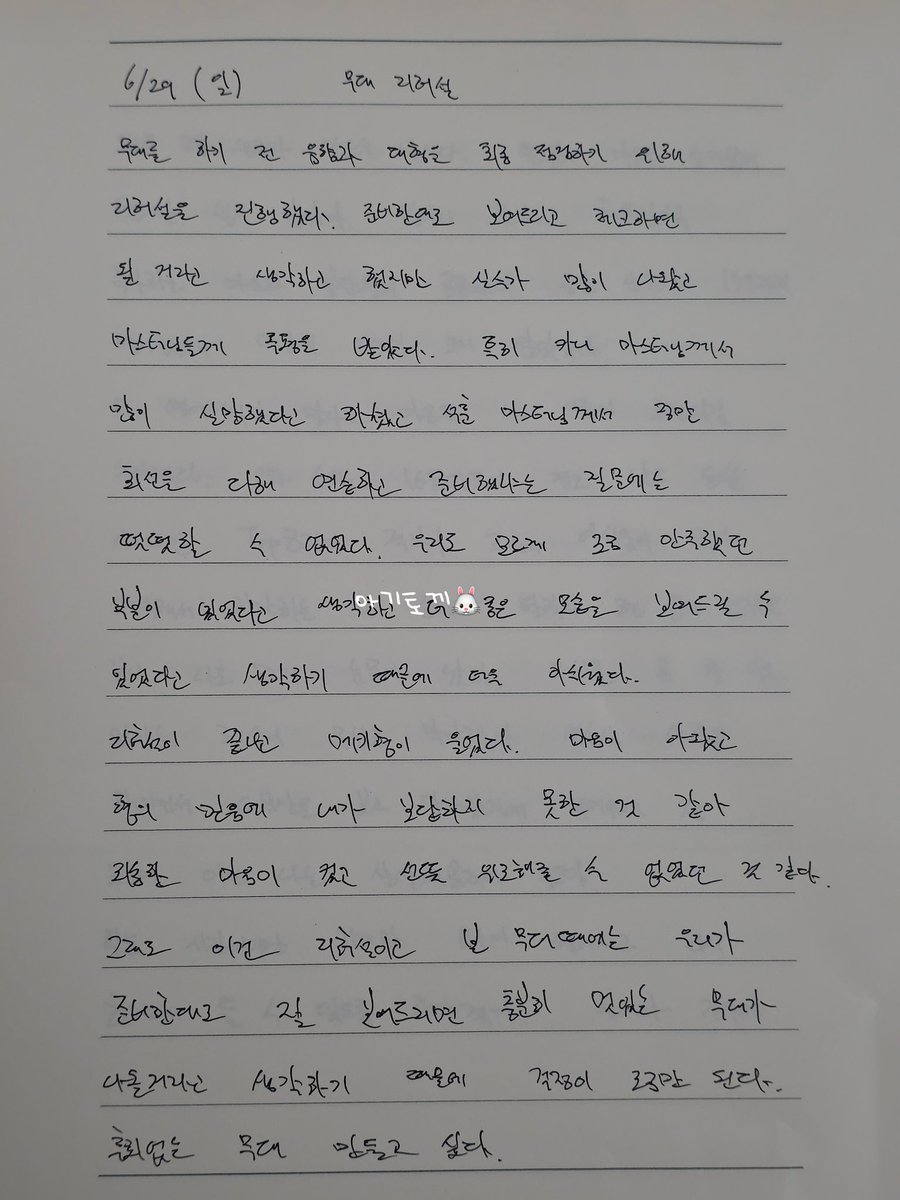 6/29 (일) 무대 리허설
무대를 하기 전 음향과 대형을 최종 점검하기 위해
리허설을 진행했다. 준비한대로 보여드리고 체크하면
될 거라고 생각하고 했지만 실수가 많이 나왔고
마스터님들께 혹평을 받았다. 특히 카니 마스터님께서
많이 실망했다고 하셨고 석훈 마스터님께서 정말
최선을 다해 연습하고 준비했냐는 질문에는
떳떳할 수 없었다. 우리도 모르게 조금 안주했던
부분이 있었다고 생각하고 더 좋은 모습을 보여드릴 수
있었다고 생각하기 때문에 더욱 아쉬웠다.
아기토끼🐰
리허설이 끝나고 메키형이 울었다. 마음이 아팠고
형의 믿음에 내가 보답하지 못한 것 같아
죄송한 마음이 컸고 선뜻 위로해줄 수 없었던 것 같다.
그래도 이건 리허설이고 본 무대때에는 우리가
준비한대로 잘 보여드리면 충분히 멋있는 무대가
나올거라고 생각하기 때문에 걱정이 조금만 된다.
후회없는 무대 만들고 싶다.